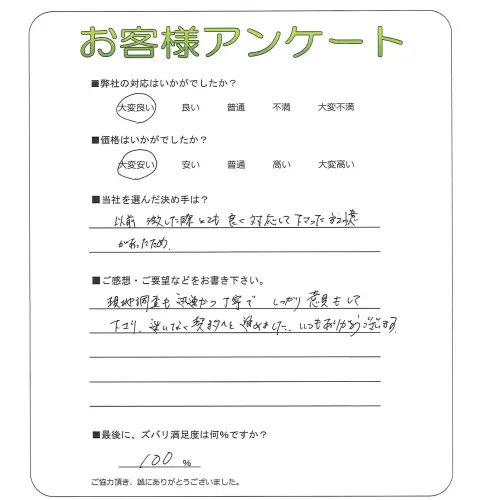 お客様アンケート
■弊社の対応はいかがでしたか？
大変良い 良い 普通 不満 大変不満
■価格はいかがでしたか？
大変安い 安い 普通 高い 大変高い
■当社を選んだ決め手は？
以前 した際とても良く対応して下さった記憶
があったため.
■ご感想・ご要望などをお書き下さい。
現地調査も迅速かつ丁寧で しっかり意見もして
下さり、迷いなく契約へと進めました。いつもありがとうございます
■最後に、ズバリ満足度は何％ですか？
100 ％
ご協力頂き、誠にありがとうございました。